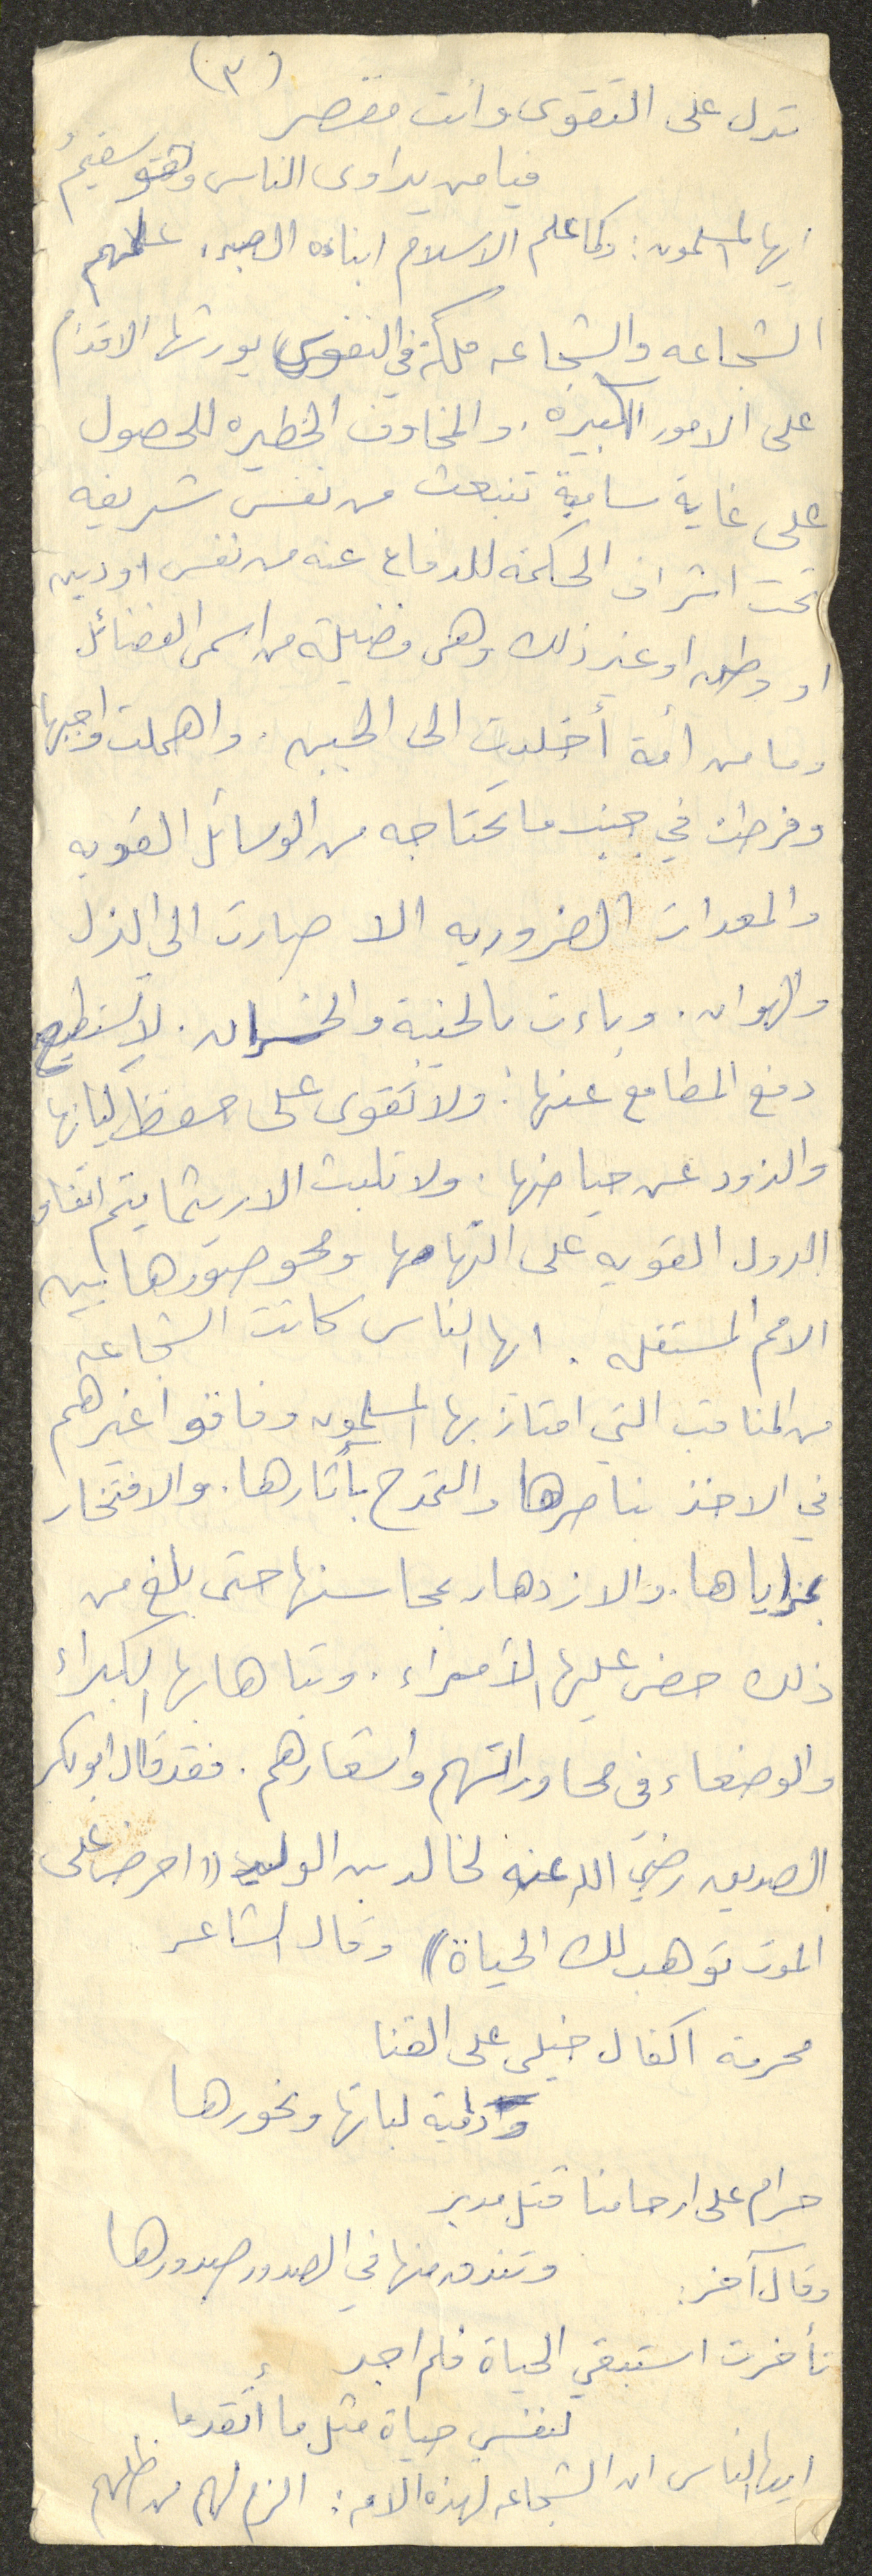 (٣)
تدل على التقوى وانت مقصر
فيا من يداوى الناس وهو سقيمُ
ايها المسلمون: وكما علم الاسلام ابناءه الصبر، علمهم
الشجاعه والشجاعه ملكة في النفوس يورثها الاقدام
على الامور الكبيرة. والمخاوف الخطيره للحصول
على غاية سامية تنبعث من نفس شريفه
تحت اشراف الحكمة للدفاع عنه من نفس او دين
او وطن او غير ذلك وهى فضيلة من اسمى الفضائل
وما من أمة أخلدت الى الجبن. واهملت واجبها
وفرطت في جنب ما تحتاجه من الوسائل القويه
والمعدات الضروريه الا صارت الى الذل
والهوان. وباءت بالخيبة والخسران. لا تستطيع
دفع المطامع عنها: ولا تقوى على حفظ كيانها
والذود عن حياضها. ولا تلبث الا ريثما يتم اتفاق
الدول القويه على التهامها ومحو صورها بين
الامم المستقله. ايها الناس كانت الشجاعه
من المناقب التي امتاز بها المسلمون وفاقوا غيرهم
في الاخذ بناصرها والتمدح بآثارها. والافتخار
بمزاياها. والازدهار بمحاسنها حتى بلغ من
ذلك حض عليها الأمراء. وتباها بها الكبراء
والوضعاء فى محاوراتهم واشعارهم. فقد قال ابو بكر
الصديق رضي الله عنه لخالد بن الوليد (( احرض على
الموت توهب لك الحياة )) وقال الشاعر
محرمة اكفال خيلى على القنا
ودامية لباتها ونحورها
حرام على ارحامنا قتل مدبر
وتندق منها في الصدور صدورها
وقال آخر:
تأخرت استبقي الحياة فلم اجد
لنفسي حياة مثل ما أتقدما
ايها الناس ان الشجاعه لهذه الامه: الزم لهم من ظلهم